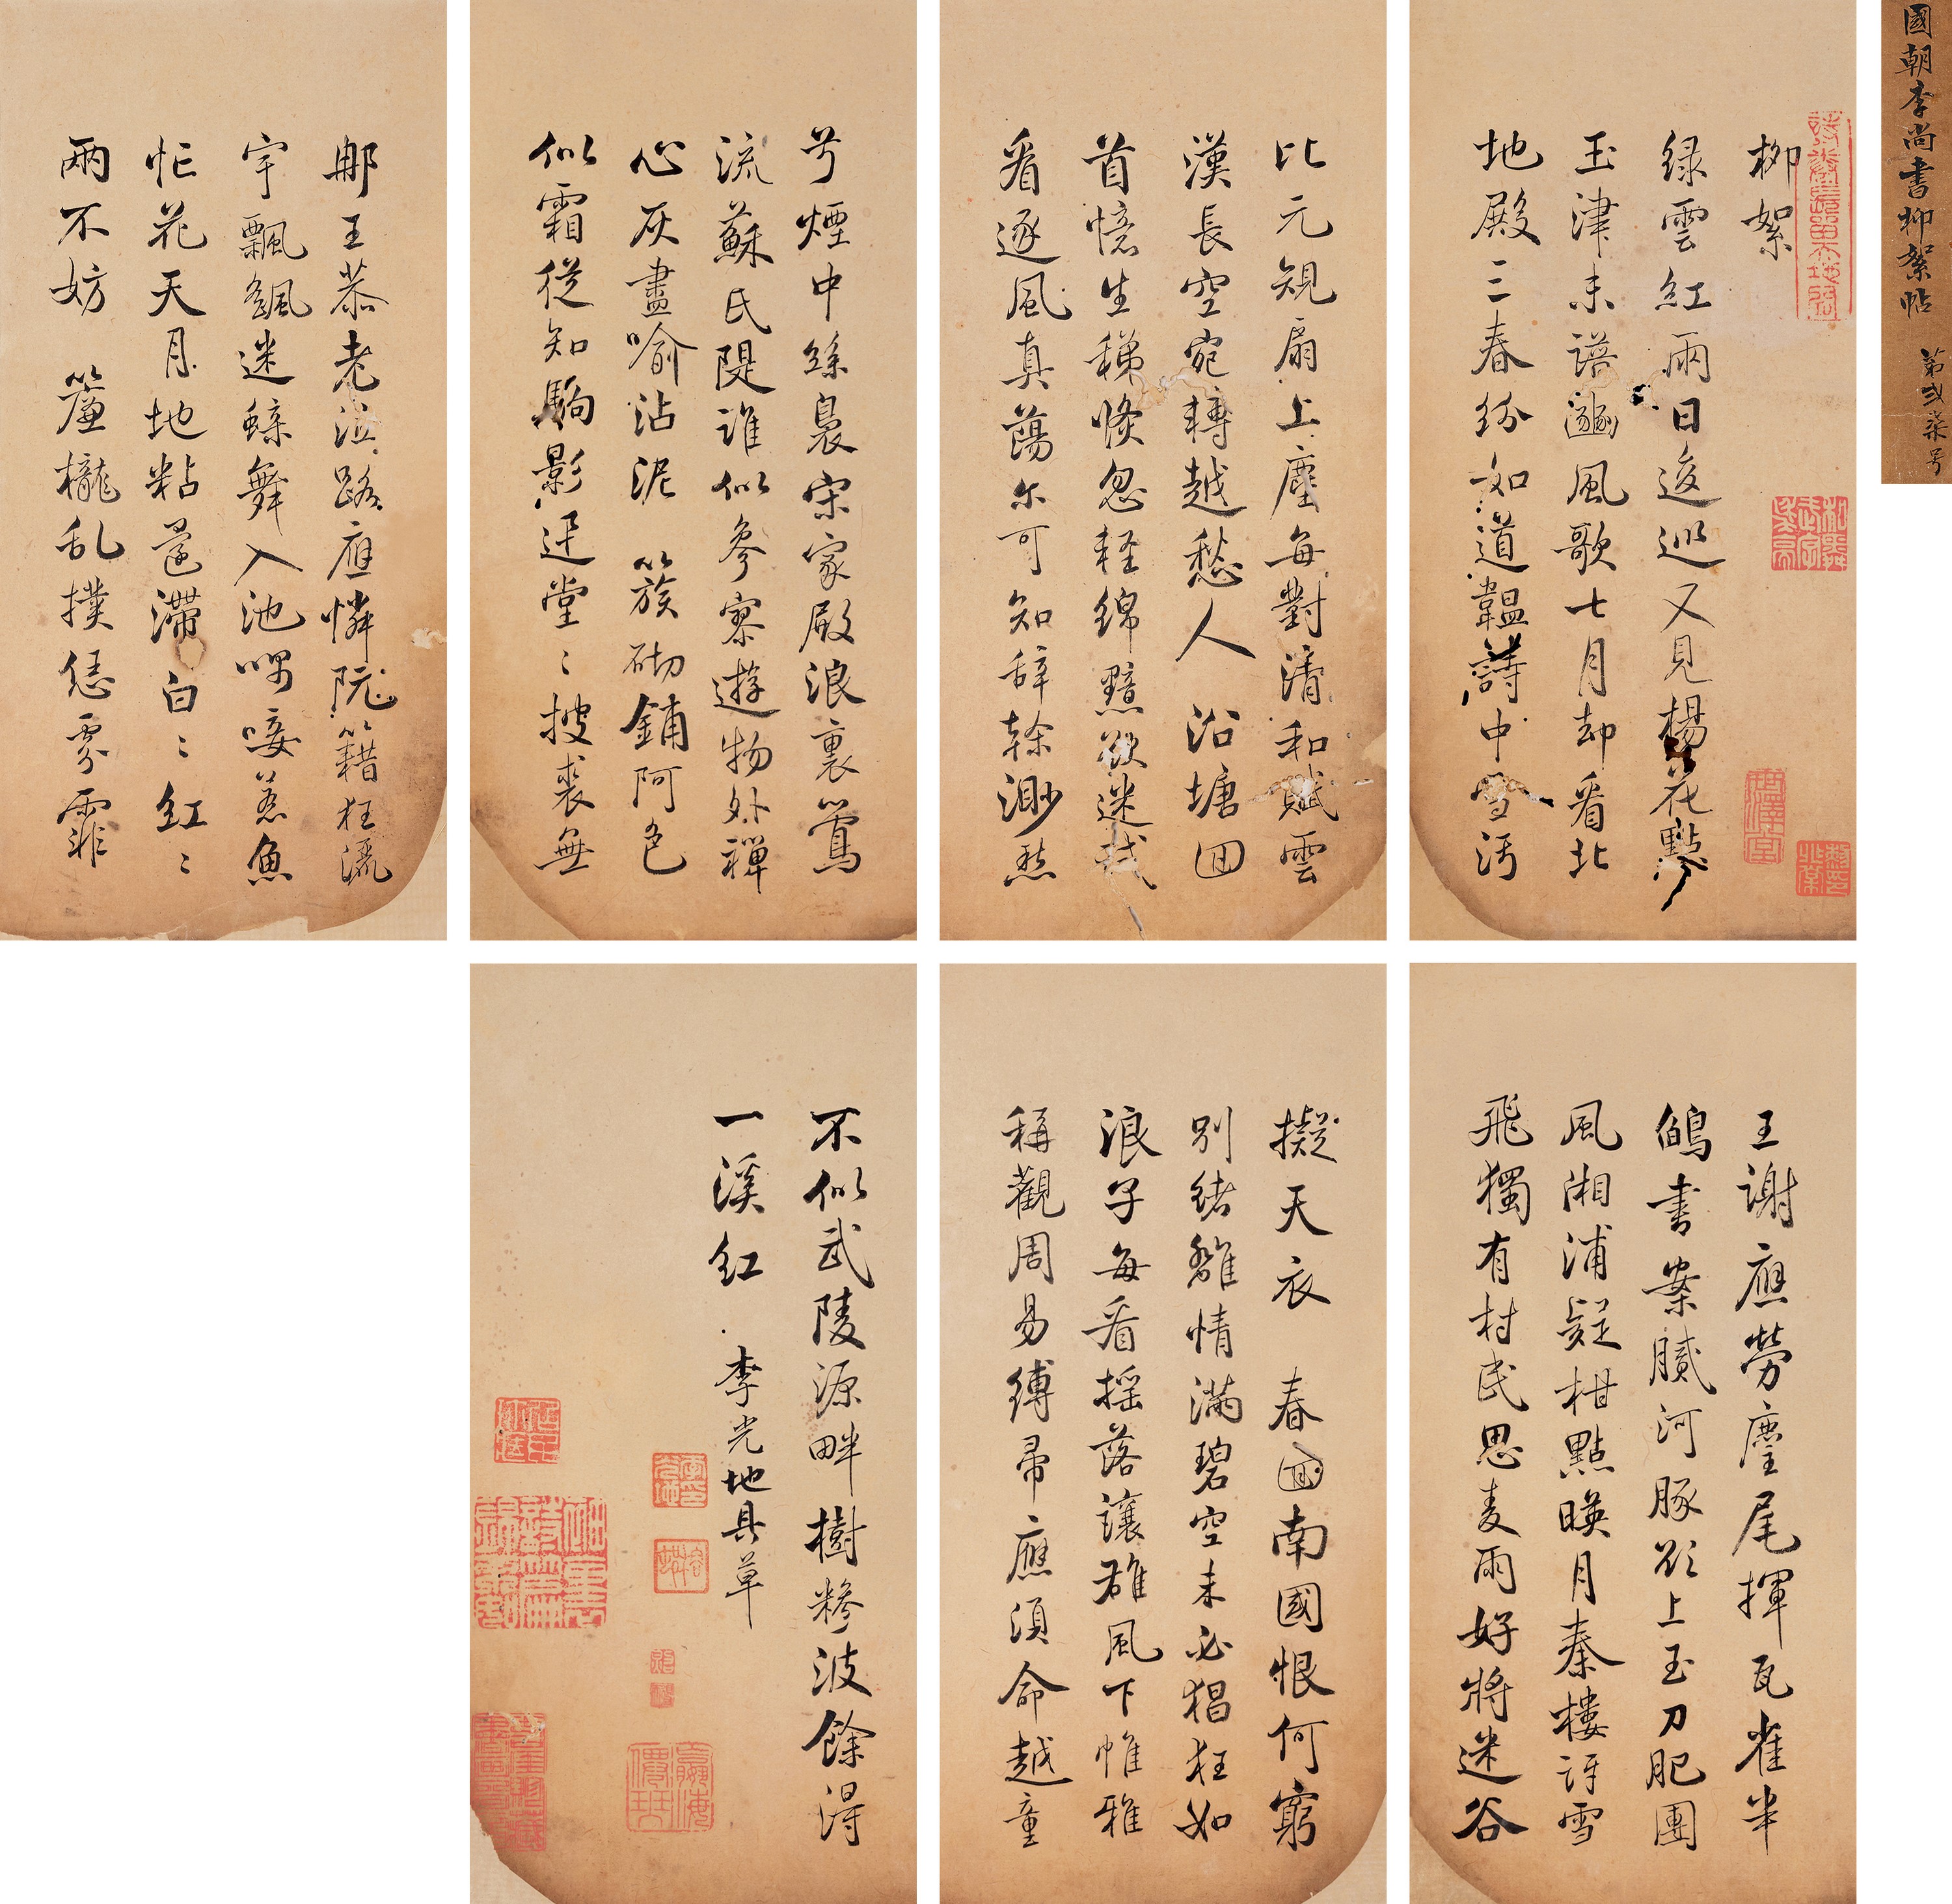 國朝李尚書柳絮帖
第弍柒号
柳絮
綠雲紅雨日逡巡又見楊花點
玉津未諳豳風歌七月却看北
地殿三春紛如道韞詩中雪污
比元規扇上塵每對清和賦雲
漢長空宛轉越愁人 沿塘回
首憶生稊倏忽輕綿黯欲迷
看逐風真蕩尓可知辞榦渺愁
兮煙中絲裊宋家殿浪裏鶯
流蘇氏隄誰似參寥遊物外禅
心灰盡喻沾泥 簇砌鋪阿色
似霜從知駒影迅堂〻披裘無
王恭老泣路應憐阮籍狂流
宇飄颻迷蝶舞入池喁唼惹魚
忙花天月地粘還滯白〻紅〻
兩不妨 簾櫳乱撲恁雰霏
王謝應勞麈尾揮瓦雀半
書案膩河豚欲上玉刀肥團
風湘浦疑柑點暎月秦樓訝雪
飛獨有村民思麦雨好將迷谷
擬天衣 春回南國恨何窮
別緒離情滿碧空未必猖狂如
浪子每看摇落讓雄風下帷雅
稱觀周易縛帚應須命越童
不似武陵源畔樹糝波餘得
一溪紅 李光地具草